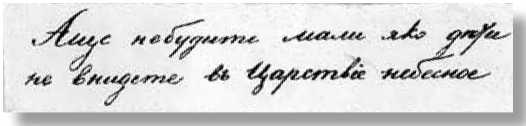 Аще небудите мали яко дѣти
не внидете въ Царствіе небесное